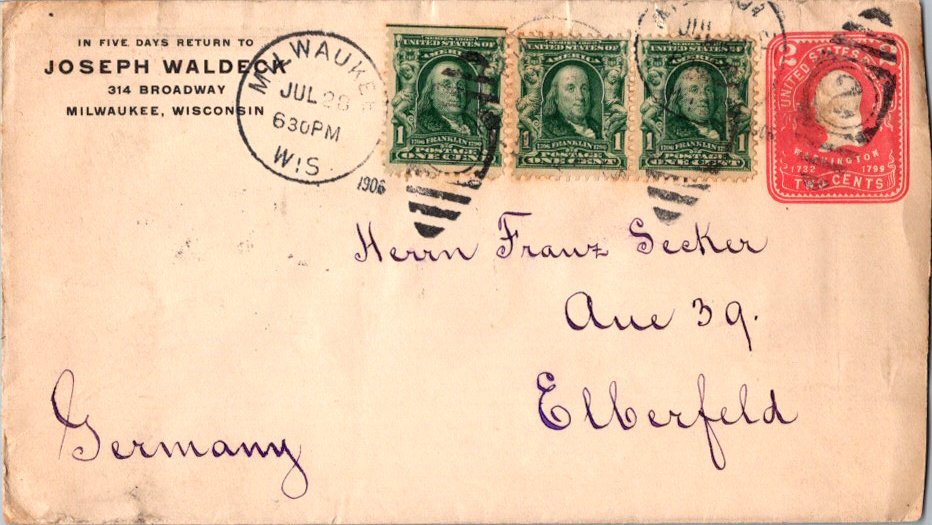 IN FIVE DAYS RETURN TO
JOSEPH WALDECK
314 BROADWAY
MILWAUKEE, WISCONSIN
MILWAUKEE
JUL 28
630PM
WIS.
1906
UNITED STATES OF
1 FRANKLIN
POSTAGE
ONE CENT
UNITED STATES OF
1 FRANKLIN 1
POSTAGE
ONE CENT
UNITED STATES OF
1 FRANKLIN 1
POSTAGE
ONE CENT
JUL
2 UNITED STATES
WASHINGTON
1732 1799
TWO CENTS
Herrn Franz Secker
Aue 39.
Elberfeld
Germany